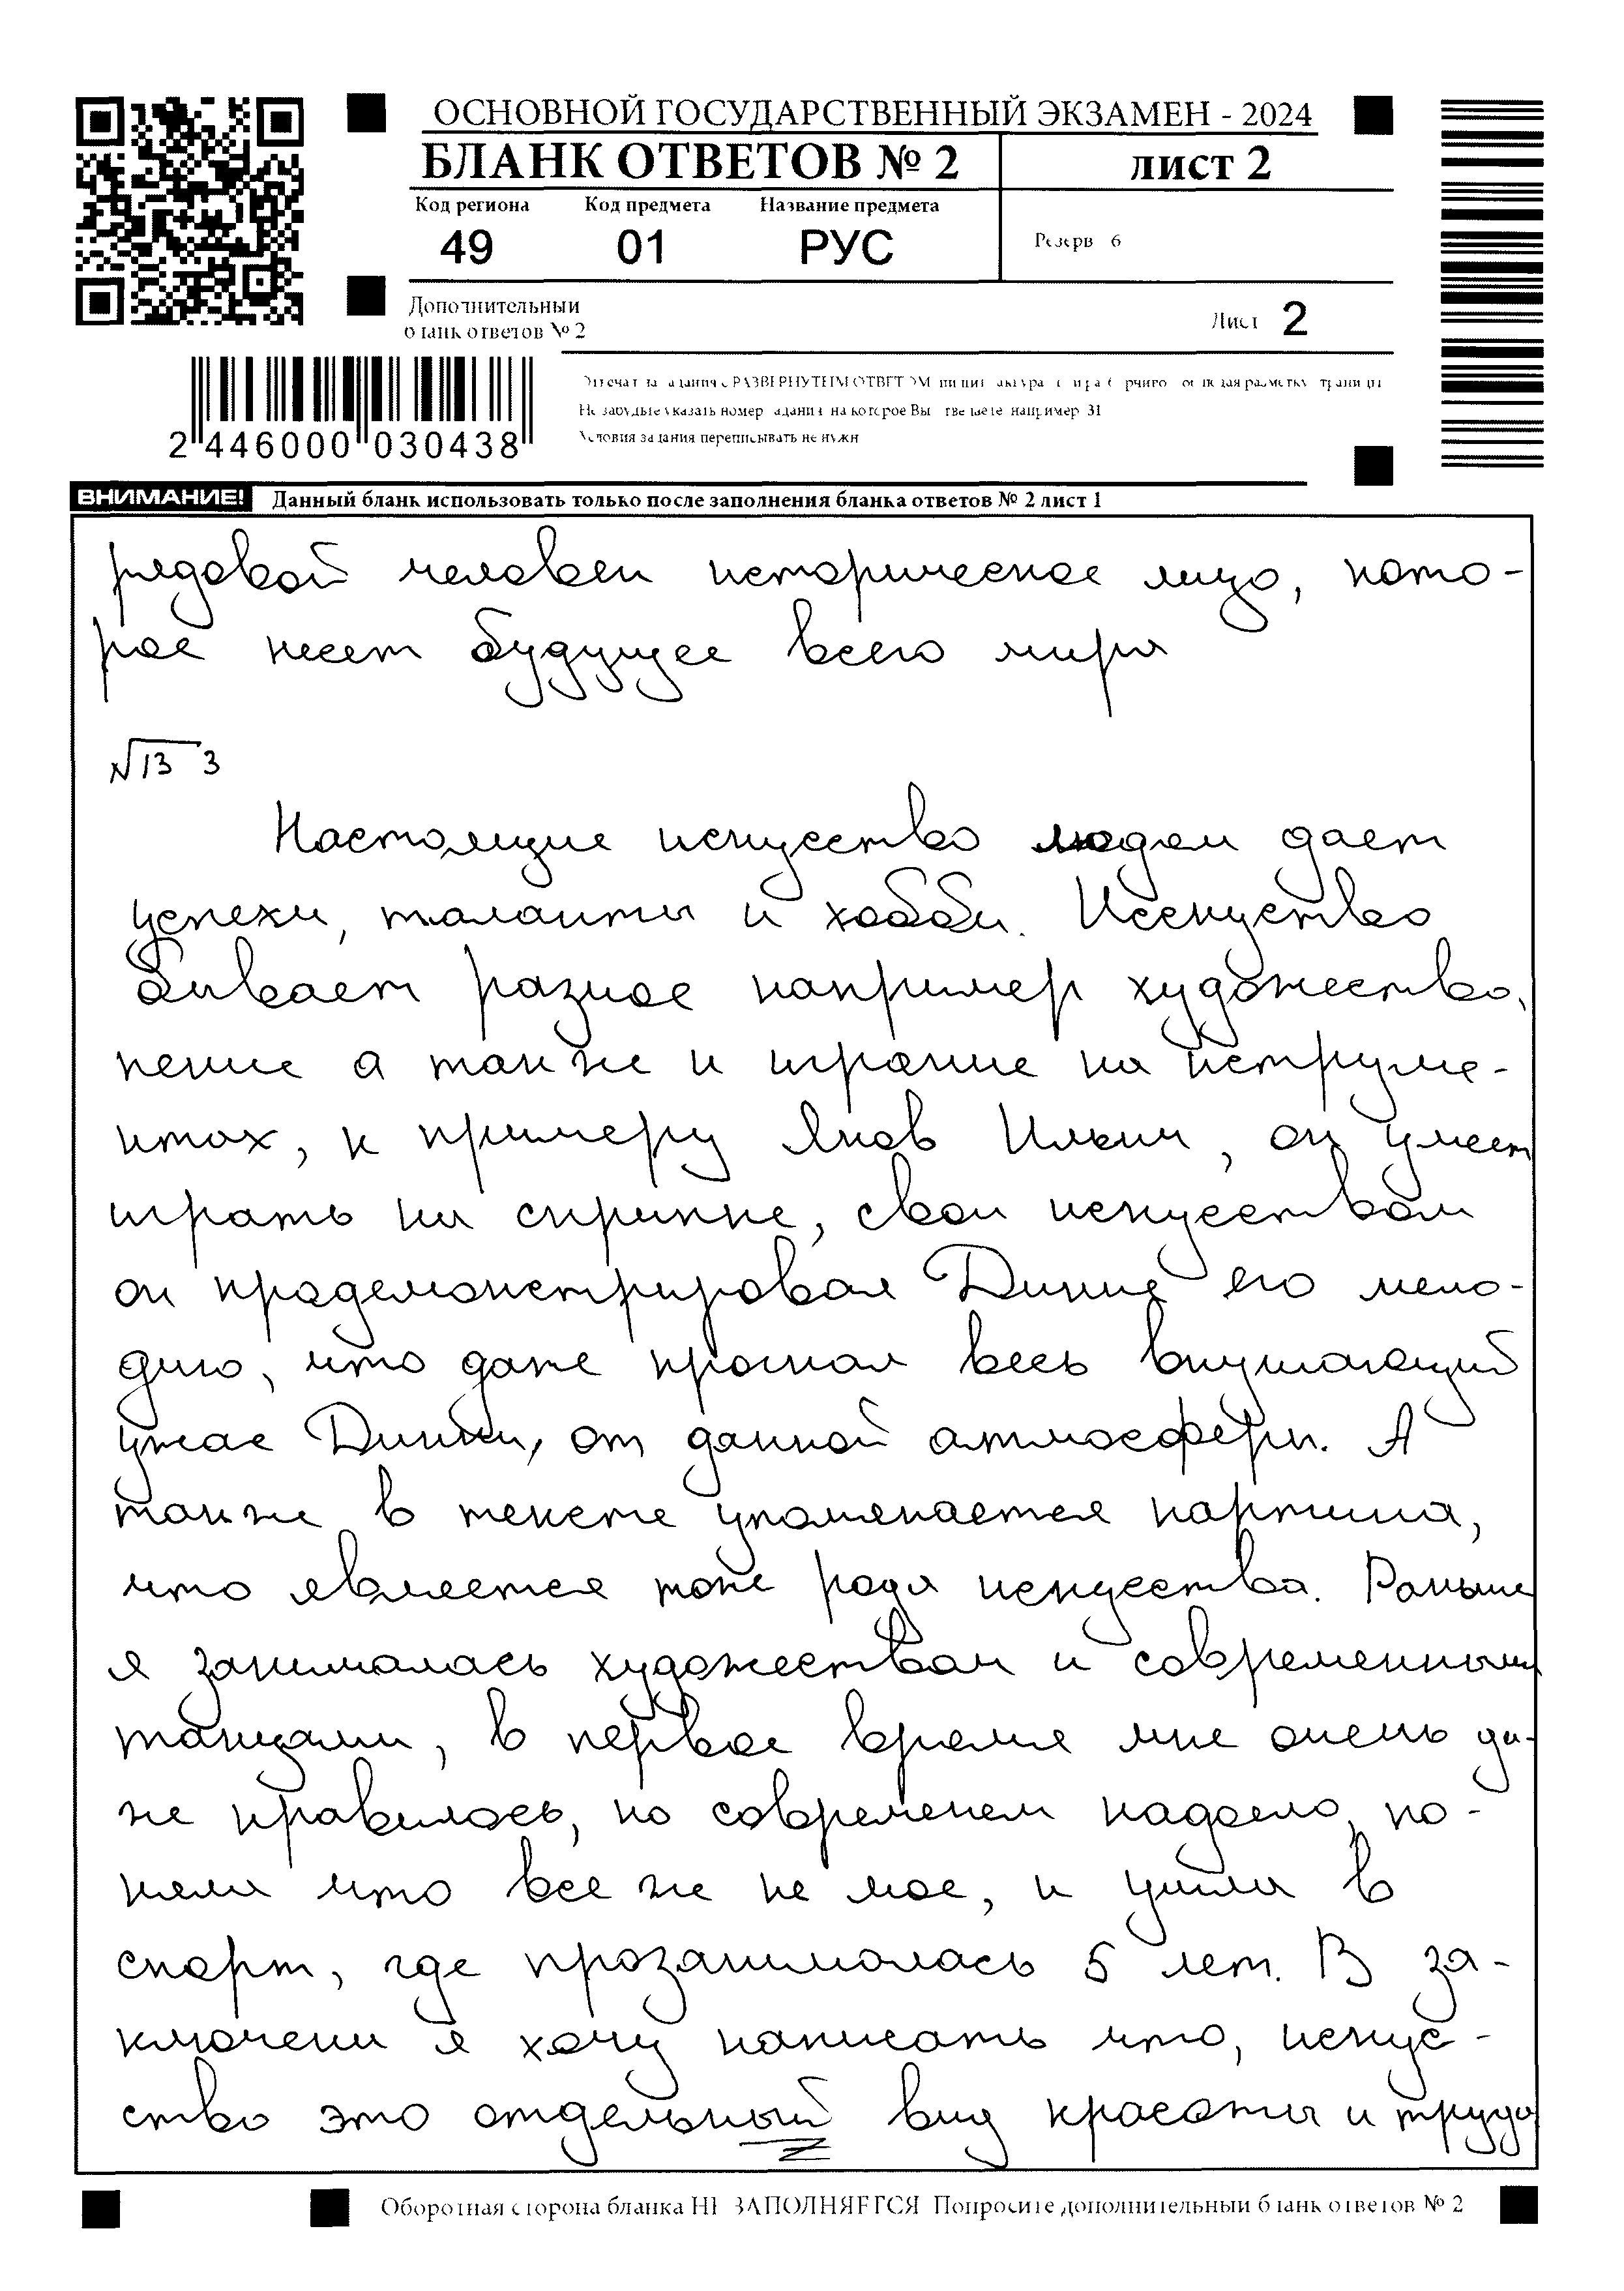 ОСНОВНОЙ ГОСУДАРСТВЕННЫЙ ЭКЗАМЕН - 2024
БЛАНК ОТВЕТОВ № 2
лист 2
Код региона Код предмета Название предмета
49 01 РУС
Резерв 6
Дополнительный
бланк ответов № 2
Лист 2
2 446000 030438
ВНИМАНИЕ! Данный бланк использовать только после заполнения бланка ответов № 2 лист 1
рядовой человек историческое лицо, кото-
рое несет будущее всего мира
№13 3
Настоящие искусство людям дает
успехи, таланты и хобби. Исскуство
бывает разное например художество,
пение а так же и играние на иструме-
нтах, к примеру Яков Ильич, он умеет
играть на скрипке, свои искусством
он продемонстрировал Динке его мело-
дию, что даже пропал весь внушающий
ужас Динки, от данной атмосферы. А
так же в тексте упоменается картина,
что является тоже рода искуства. Раньше
я занималась художеством и современными
танцами, в первое время мне очень да-
же нравилось, но современем надоело, по-
няла что все же не мое, и ушла в
спорт, где прозанималась 5 лет. В за-
ключени я хочу написать что, искус-
ство это отдельный вид красоты и труда
Z
Оборотная сторона бланка НЕ ЗАПОЛНЯЕТСЯ Попросите дополнительный бланк ответов № 2